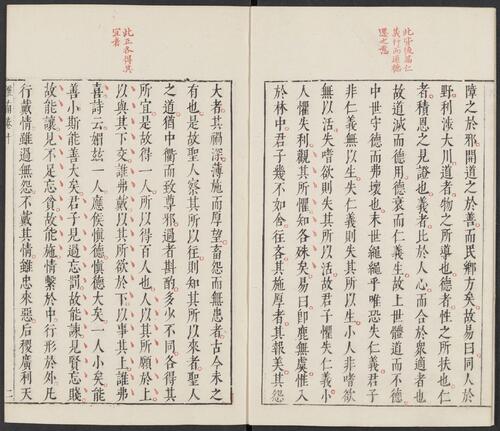 此後篇仁
義行而道德
遷之意
障之於邪開道之於善而民鄉方矣故易曰同人於
野利涉大川道者物之所導也德者性之所扶也仁
者積恩之見證也義者比於人心而合於衆適者也
故道滅而德用德衰而仁義生故上世體道而不德
中世守德而弗壞也末世繩繩乎唯恐失仁義君子
非仁義無以生失仁義則失其所以生小人非嗜欲
無以活失嗜欲則失其所以活故君子懼失仁義小
人懼失利觀其所懼知各殊矣易曰即鹿無虞惟入
於林中君子幾不如舍往吝其施厚者其報美其怨
此正各得其
宜者
大者其禍深薄施而厚望畜怨而無患者古今未之
有也是故聖人察其所以往則知其所以來者聖人
之道猶中衢而致尊邪過者斟酌多少不同各得其
所宜是故得一人所以得百人也人以其所願於上
以與其下交誰弗戴以其所欲於下以事其上誰弗
喜詩云媚茲一人應侯慎德慎德大矣一人小矣能
善小斯能善大矣君子見過忘罰故能諫見賢忘賤
故能讓見不足忘貧故能施情繫於中行形於外凡
行戴情雖過無怨不戴其情雖忠來惡后稷廣利天
淮南卷十 二